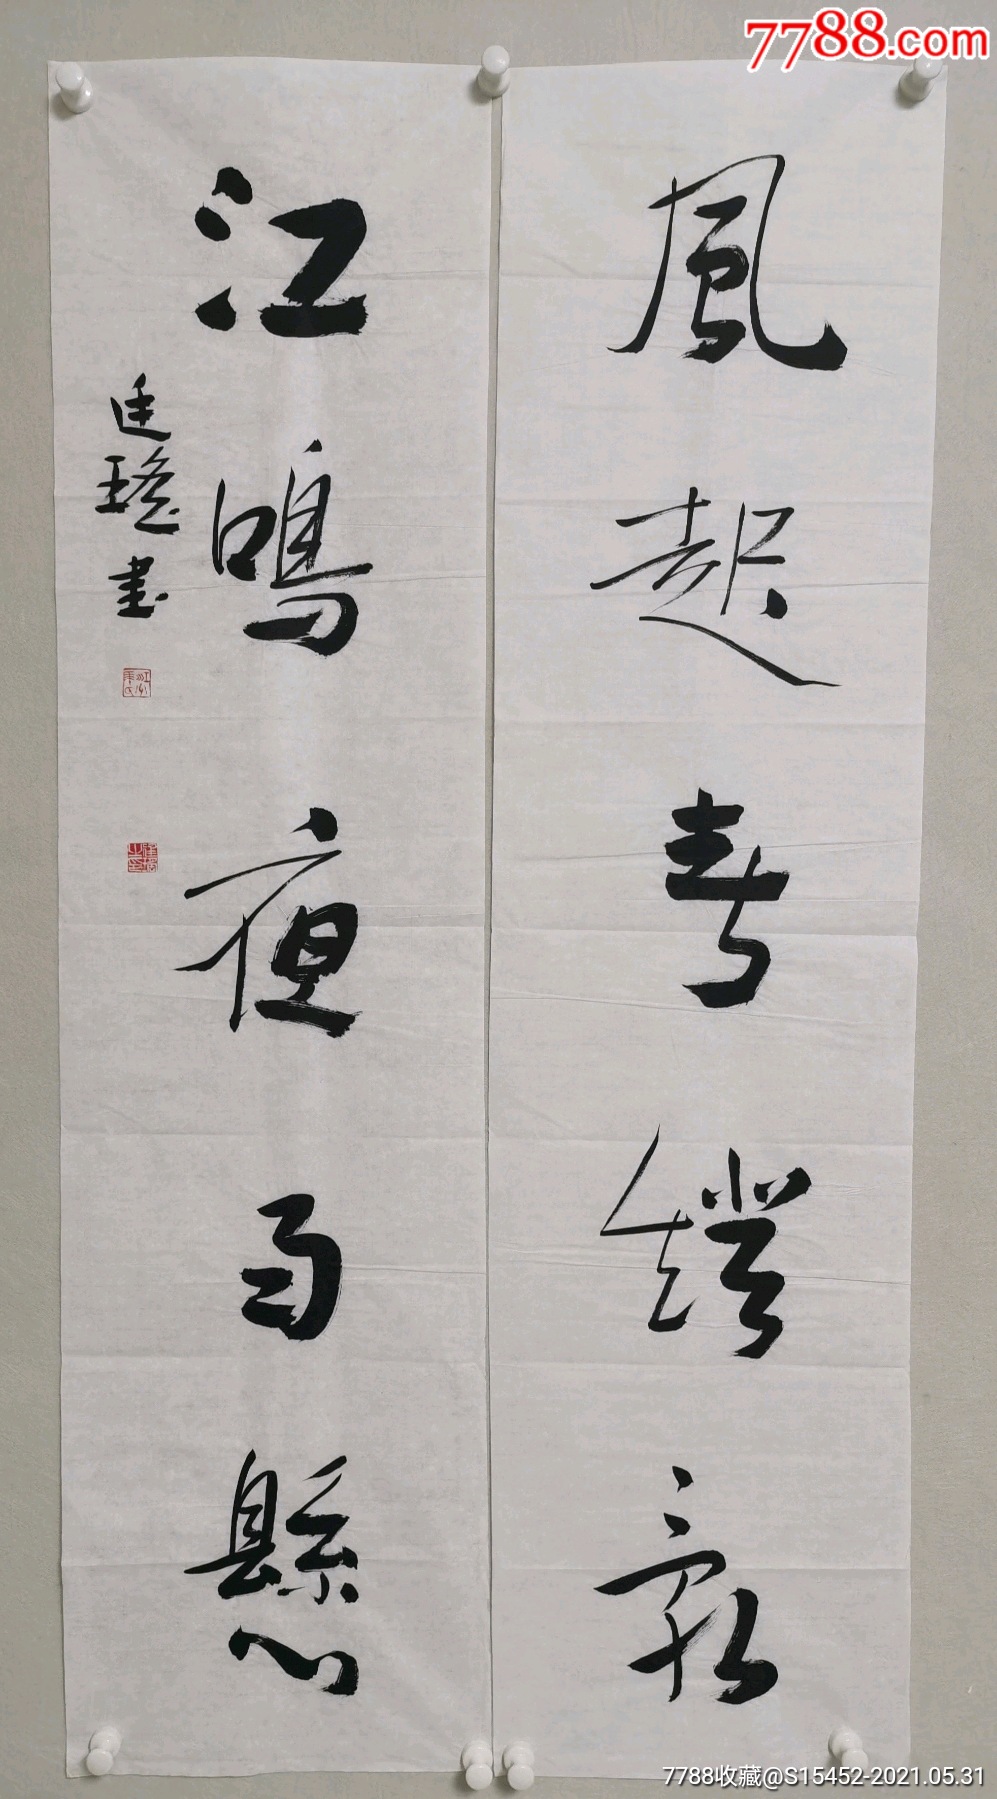 風起春燈亂
江鳴夜雨懸
廷瑤書
7788.com
7788收藏@S15452-2021.05.31